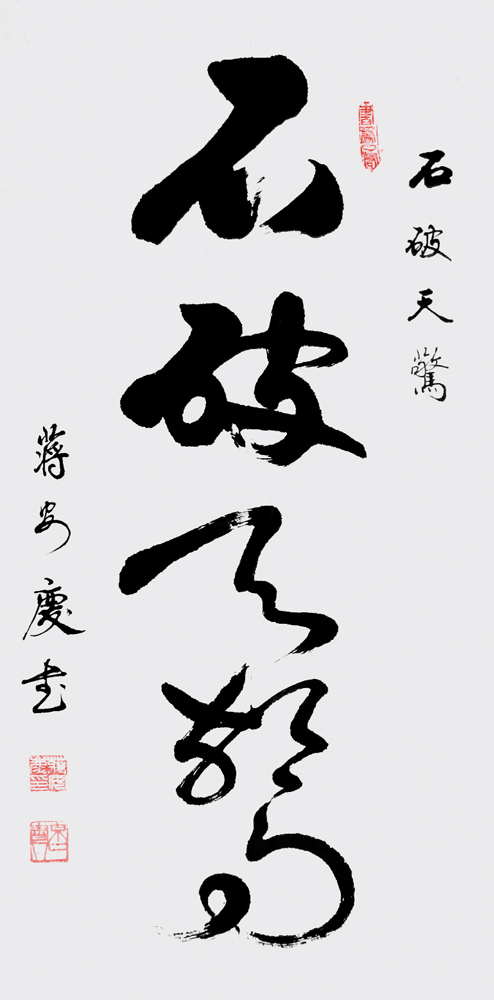 石破天驚
石破天驚
蔣安慶书